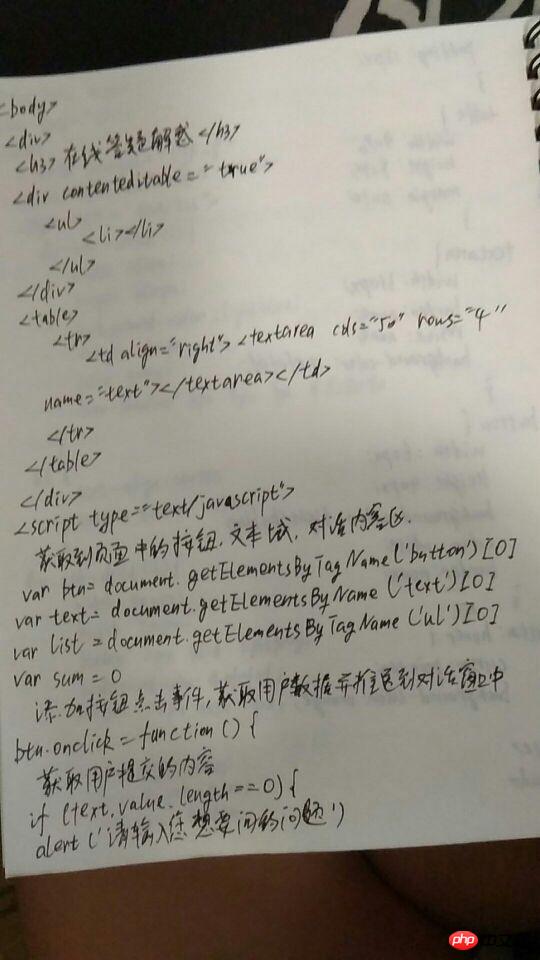 <body>
<div>
<h3>在线答疑解惑</h3>
<div contenteditable="true">
<ul>
<li></li>
</ul>
</div>
<table>
<tr>
<td align="right"><textarea cols="50" rows="4"
name="text"></textarea></td>
</tr>
</table>
</div>
<script type="text/javascript">
获取到页面中的按钮,文本域,对话内容区.
var btn=document.getElementsByTagName('button')[0]
var text=document.getElementsByName('text')[0]
var list=document.getElementsByTagName('ul')[0]
var sum=0
添加按钮点击事件,获取用户数据并推送到对话窗口中
btn.onclick=function(){
获取用户提交的内容
if(text.value.length==0){
alert('请输入您想要问的问题')
php